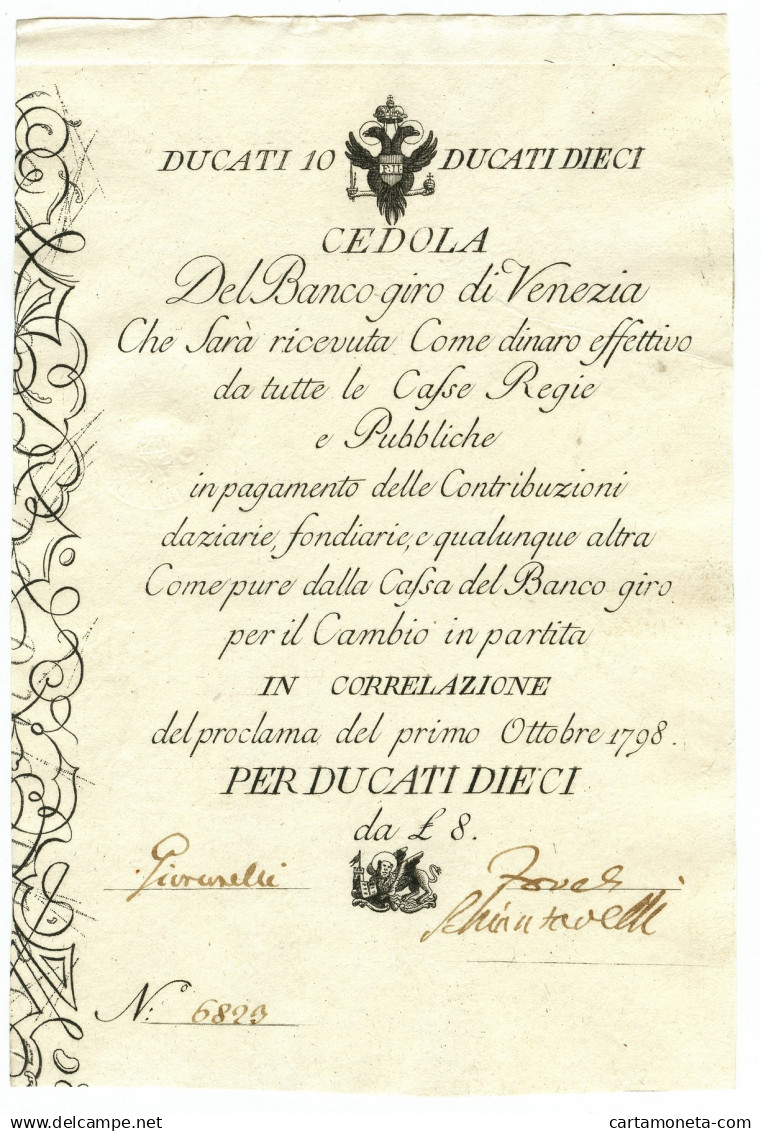 DUCATI 10 DUCATI DIECI
F. II.
CEDOLA
Del Banco giro di Venezia
Che Sarà ricevuta Come dinaro effettivo
da tutte le Caſse Regie
e Pubbliche
in pagamento delle Contribuzioni
daziarie, fondiarie, e qualunque altra
Come pure dalla Caſsa del Banco giro
per il Cambio in partita
IN CORRELAZIONE
del proclama del primo Ottobre 1798.
PER DUCATI DIECI
da £ 8.
N:º 6823
delcampe.net
cartamoneta-com